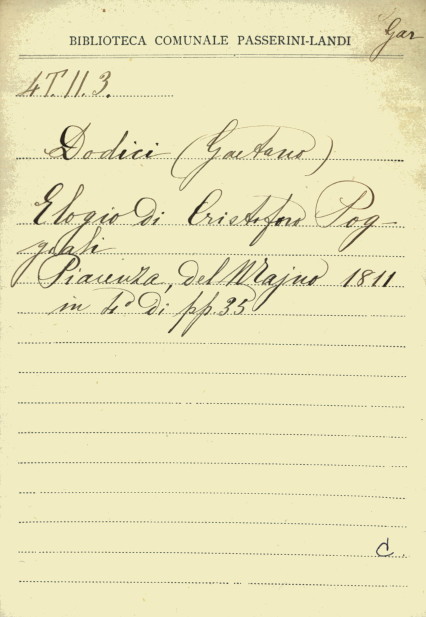 BIBLIOTECA COMUNALE PASSERINI-LANDI
Gar
4T.II.3.
Dodici (Gaetano)
Elogio di Cristoforo Pog-
giali
Piacenza, del Majno 1811
in 4° di pp. 35
C.